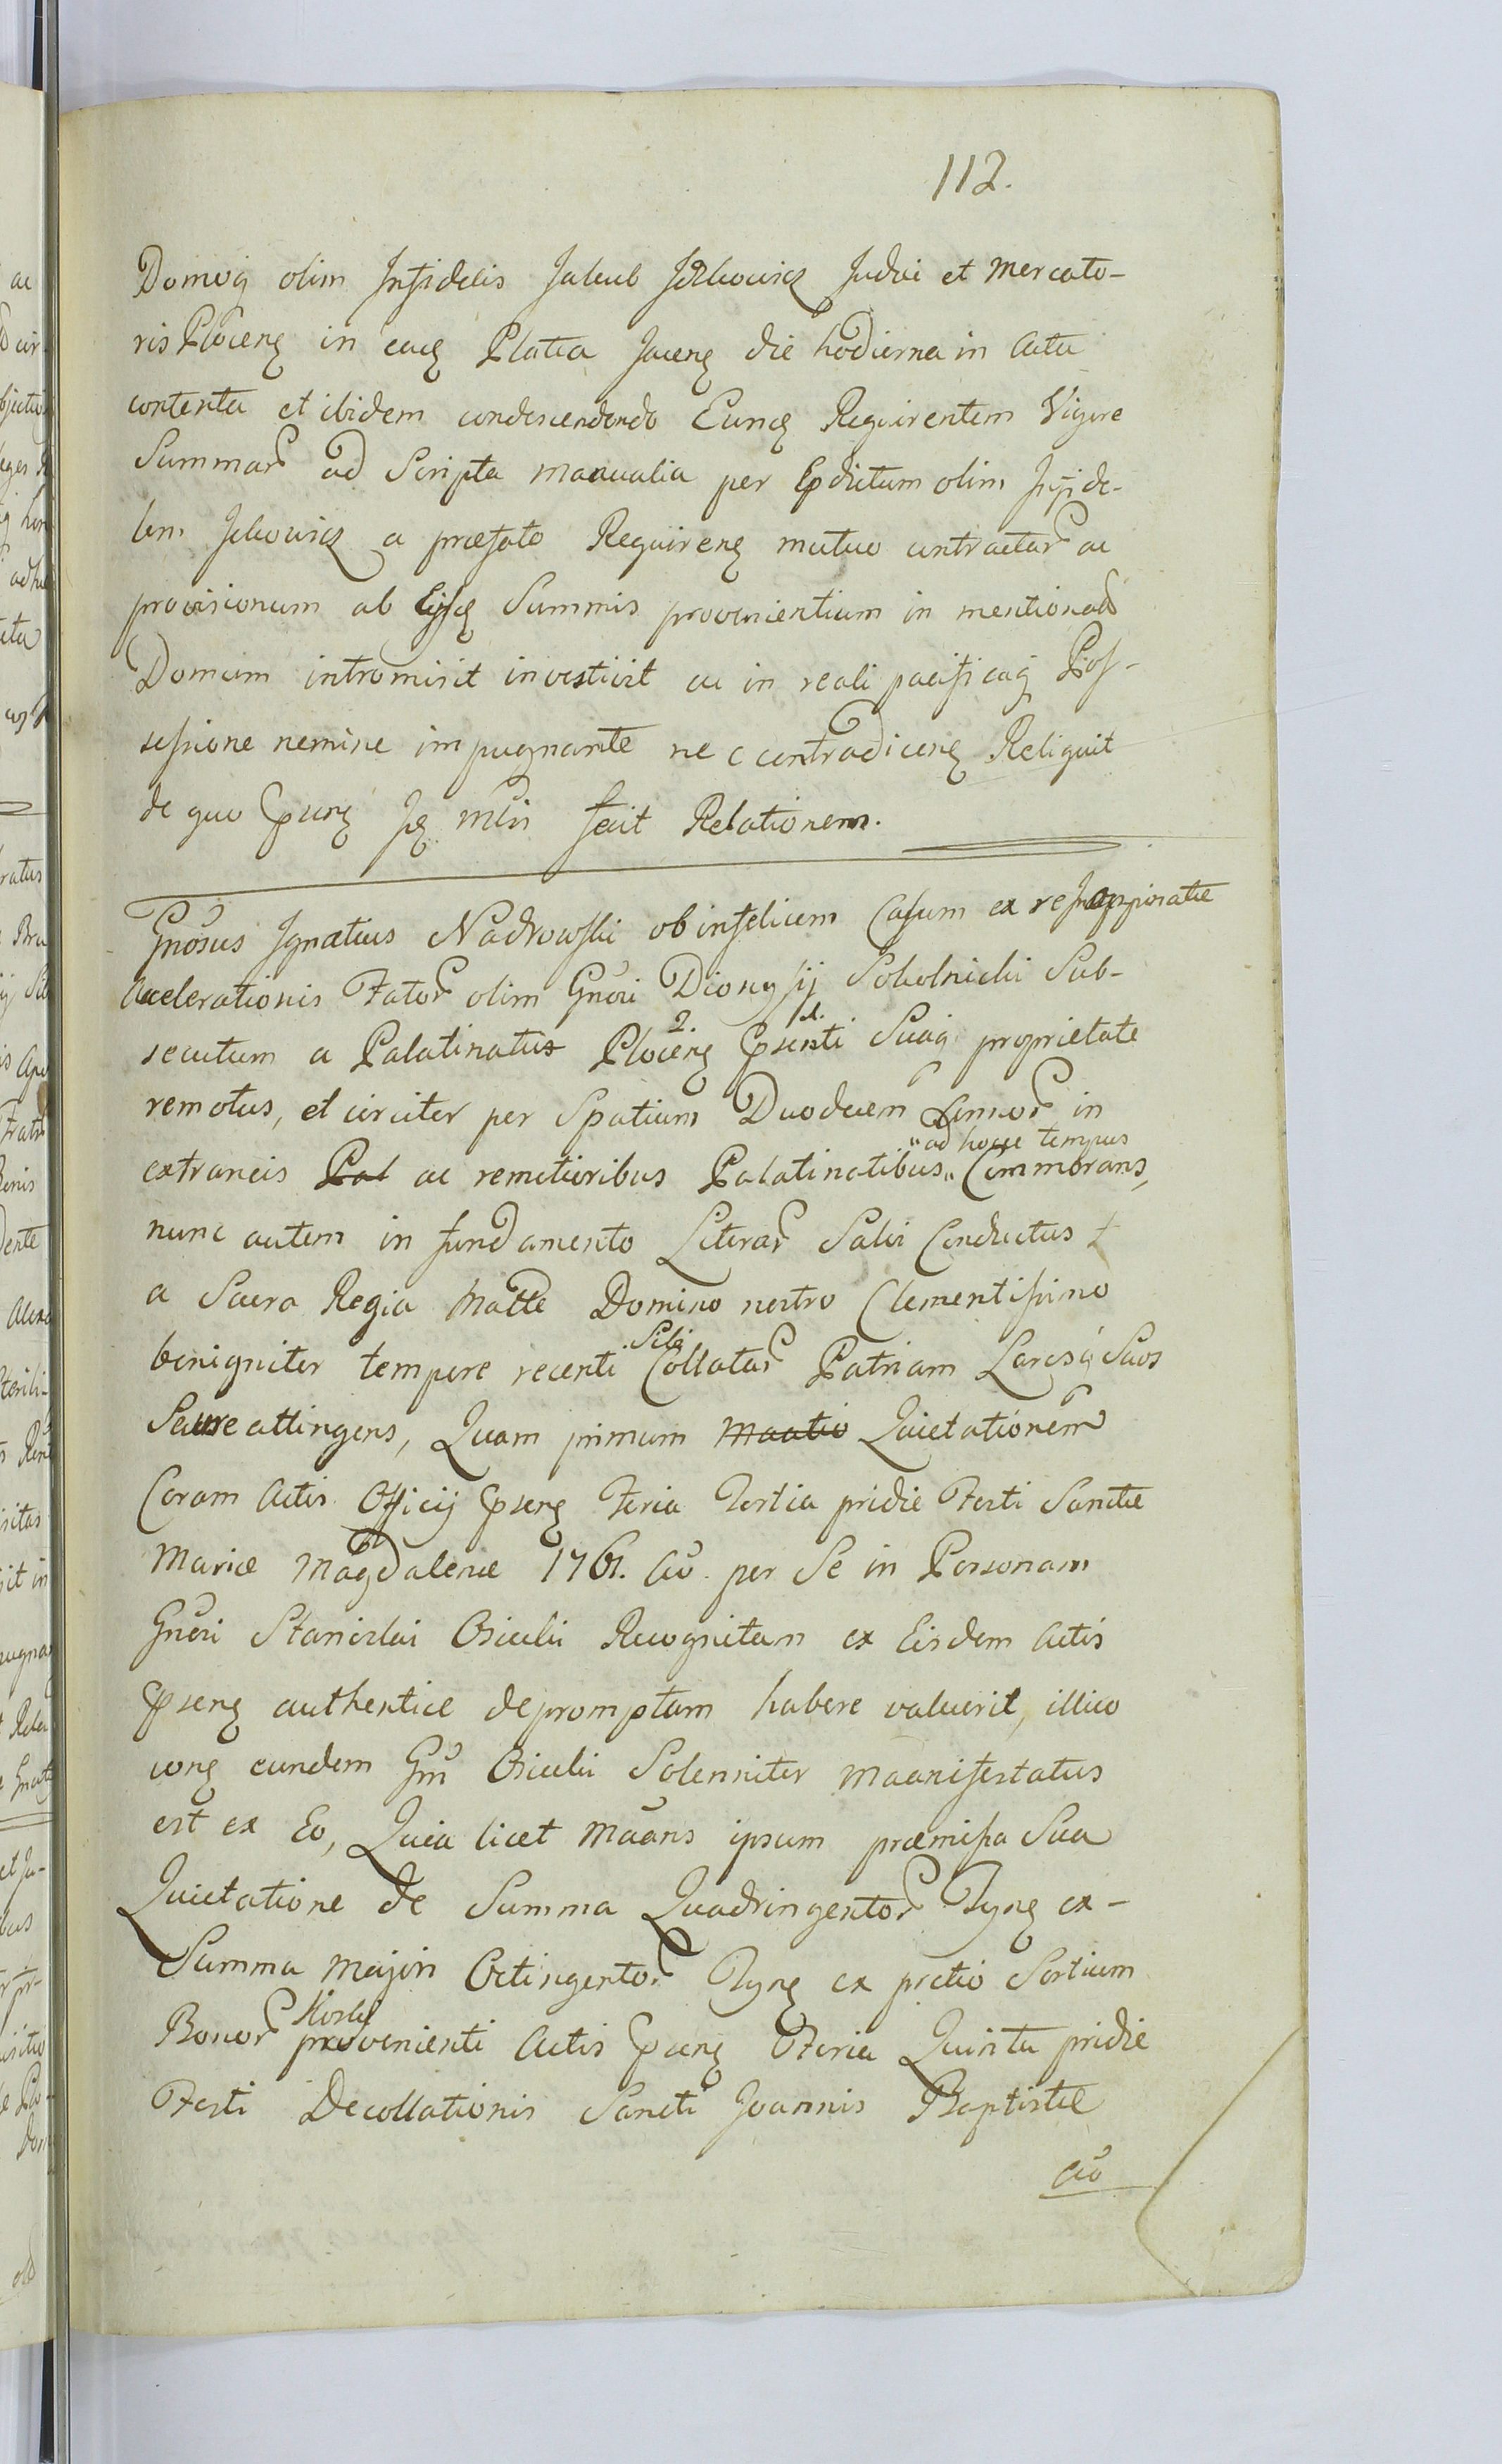 112.
Domoq olim Infidelis Jakub Ickowicz Judæi et Mercato-
ris Plocens in eadq Platea Jacens die hodierna in Actu
contenta et ibidem condescendendo Eundq Requirentem Vigore
Summar ad Scripta Manualia per Eundictum olim Infide-
lem Ickowicz a præfato Requirens mutuo contractar ac
provisionum ab Eisdq Summis provenientium in mentionatã
Domum intromisit investivit ac in reali pacificaq Pos-
sessione nemine impugnante nec contradicens Reliquit
de quo pruns Jq Mĩn fecit Relationem.
Gnosus Ignatius Nadrowski ob infelicem Casum ex re Inopinatæ
Accelerationis Fator olim Gnõsi Dionysij Sokolnicki Sub-
secutum a Palatinatus Plocens 2. prsenti 1. Suaq proprietate
remotus, et circiter per Spatium Duodecem Annor in
extraneis Pal ac remotioribus Palatinatibus "ad hocce tempus" Commorans,
nunc autem in fundamento Literar Salvi Conductus
a Sacra Regia Matte Domino nostro Clementissimo
benigniter tempore recenti Sibi Collatar Patriam Laresq Suos
Secure attingens, Quam primum Maatio Quietationem
Coram Actis Officij prsens Feria Tertia pridie Festi Sanctæ
Mariæ Magdalenæ 1761. Aõ. per Se in Personam
Gnõsi Stanislai Osiecki Recognitam ex Eisdem Actis
prsens authentice depromptam habere valuerit, illico
cong eundem Gm Osiecki Solenniter Maanifestatus
est ex Eo, Quia licet Maans ipsum præmissa Sua
Quietatione de Summa Quadringentor Tyns ex-
Summa Majori Octingentor Tyns ex pretio Sortium
Bonor provenienti Actis pruns Feria Quinta pridie
Festi Decollationis Sancti Joannis Baptistæ
Aõ